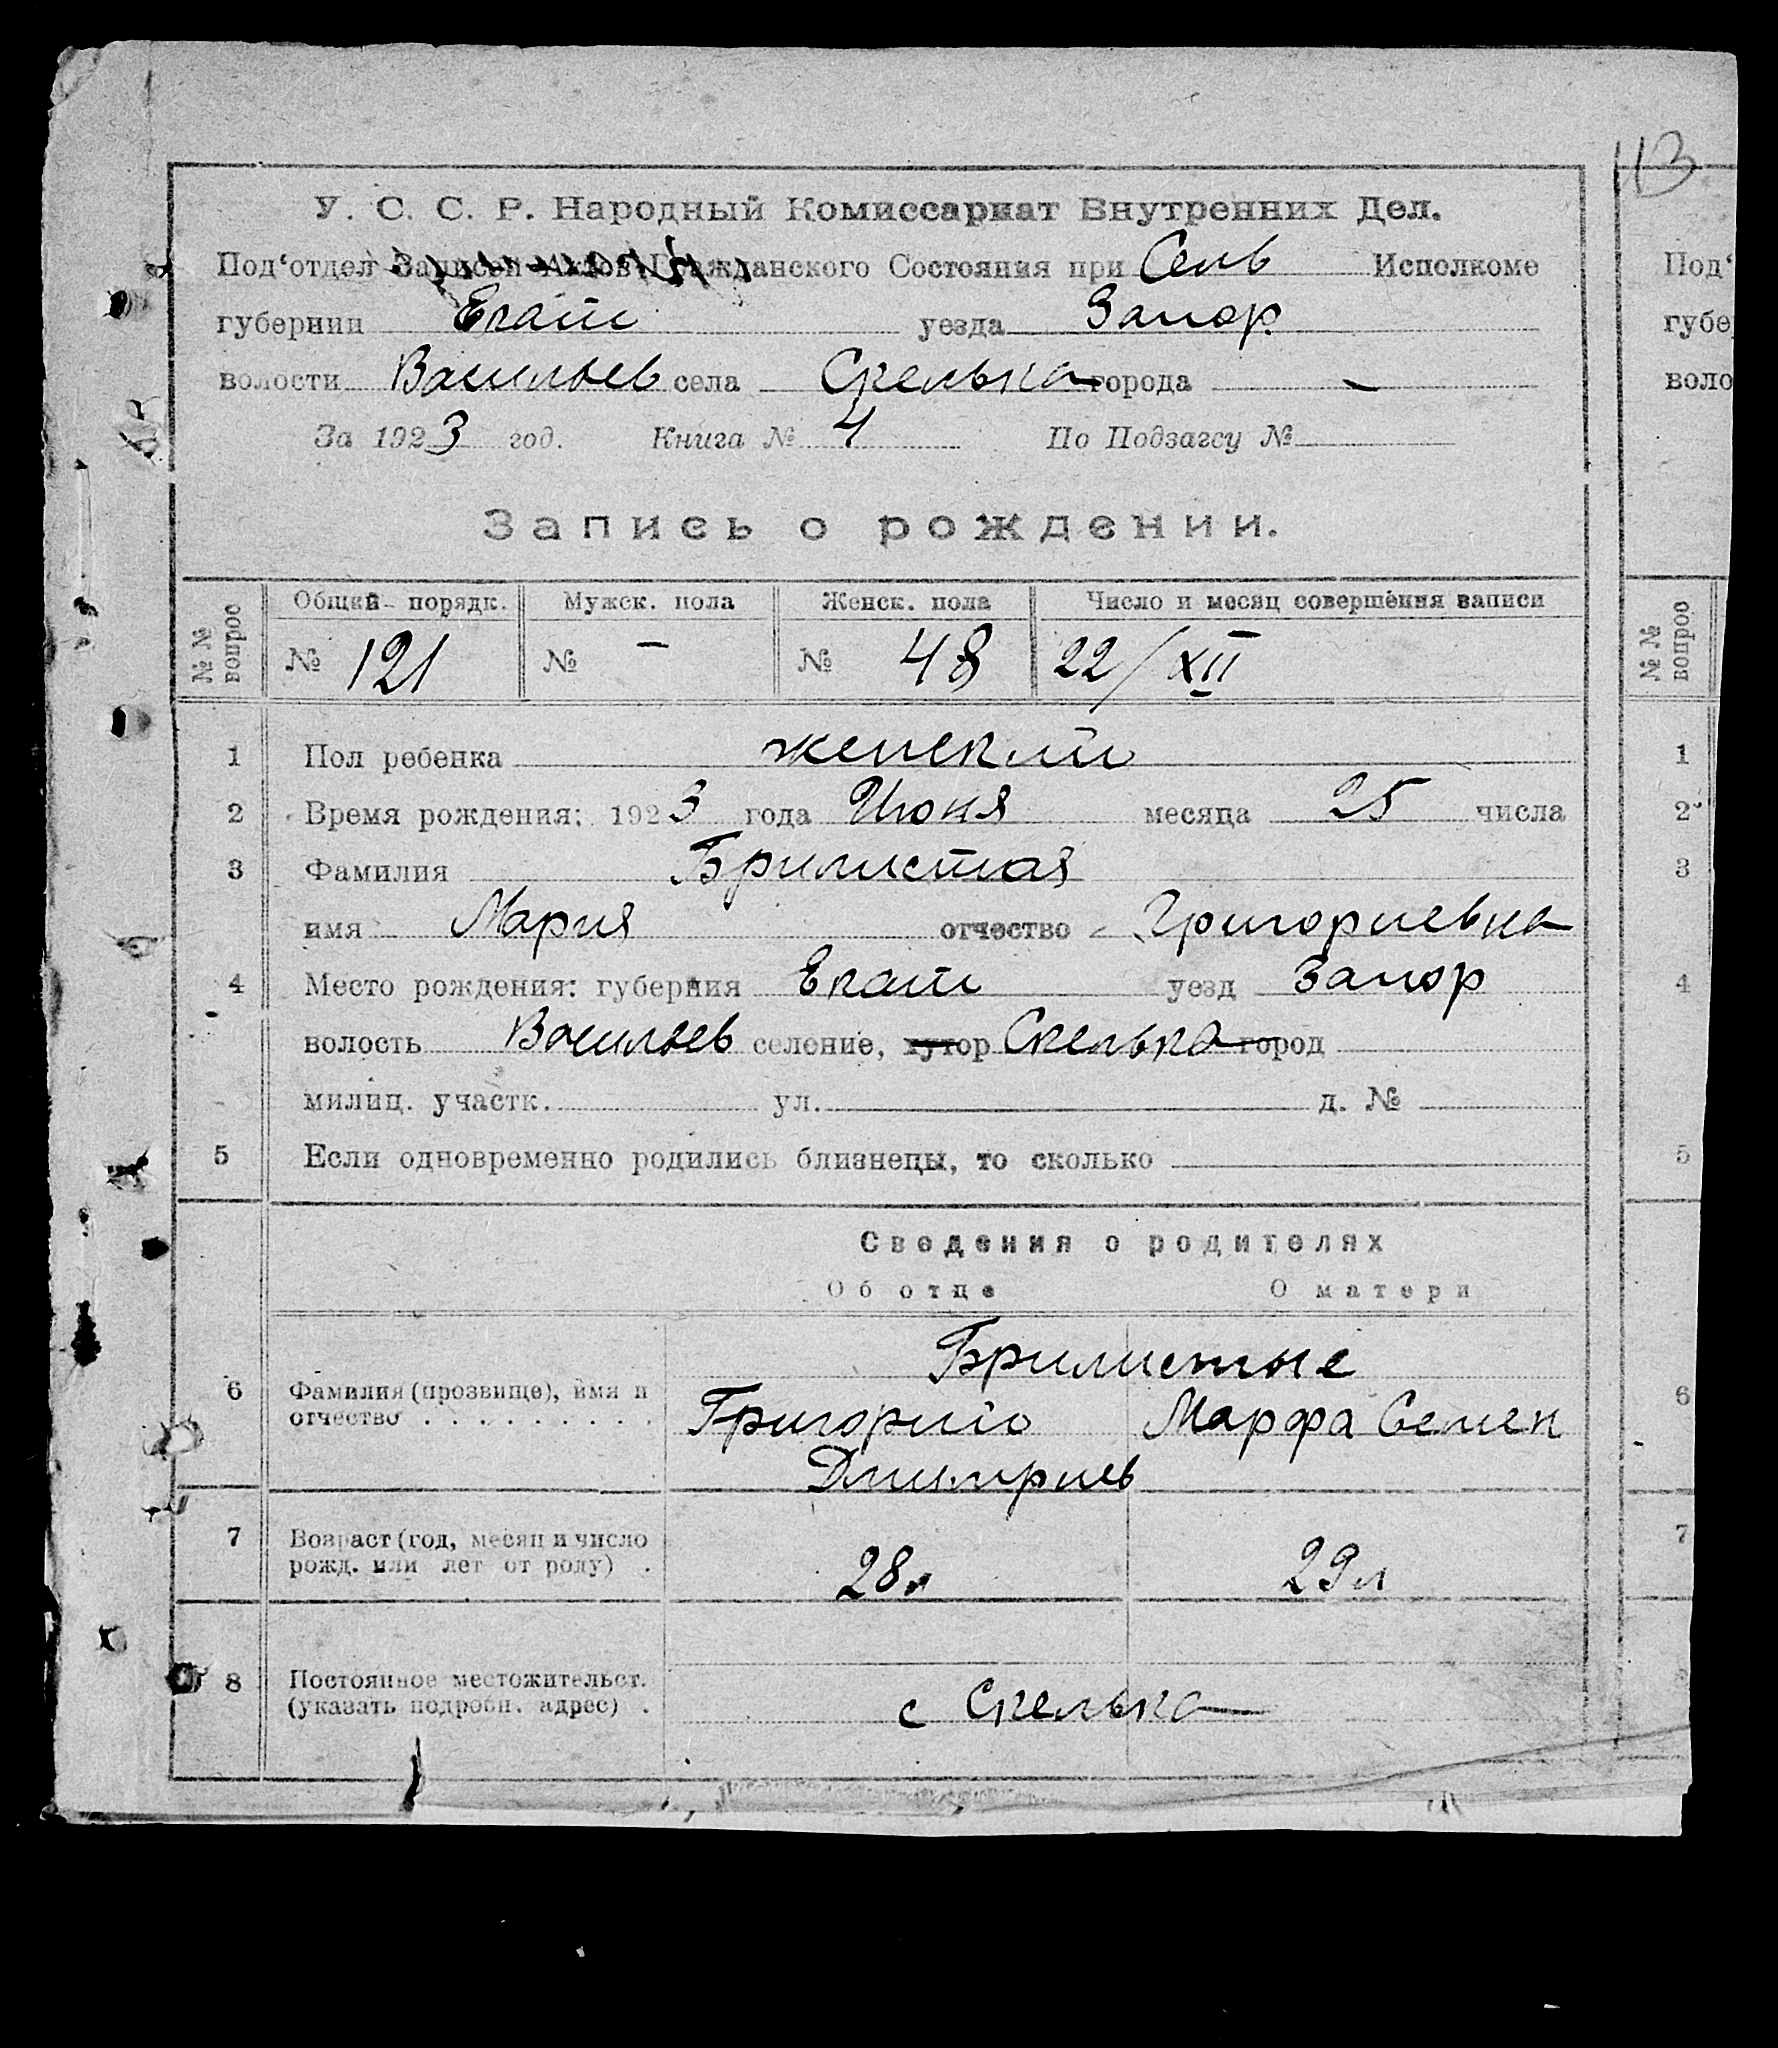 113
У. С. С. Р. Народный Комиссариат Внутренних Дел.
Под'отдел Записей Актов Гражданского Состояния при Сель Исполкоме
губернии Екат уезда Запор
волости Васильев села Скелька города –
За 1923 год. Книга № 4 По Подзагсу №
Запись о рождении.
№№ вопрос Общий порядк. Мужск. пола Женск. пола Число и месяц совершения записи
№ 121 № – № 48 22/XII
1 Пол ребенка женский
2 Время рождения: 1923 года Июня месяца 25 числа
3 Фамилия Брилистая
имя Мария отчество Григориевна
4 Место рождения: губерния Екат уезд Запор
волость Васильев селение, хутор Скелька город
милиц. участк. ул. д. №
5 Если одновременно родились близнецы, то сколько
Сведения о родителях
Об отце О матери
Брилистые
6 Фамилия (прозвище), имя и
отчество . . . . . . . . . Григорий Марфа Семен
Дмитриев
7 Возраст (год, месяц и число
рожд. или лет от роду) . 28л 29л
8 Постоянное местожительст.
(указать подробн. адрес) . с Скелька
Под'
губе
воло
№№ вопрос
1
2
3
4
5
6
7